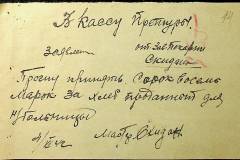 В кассу Препуры.
Заявлен от Зав Пекарни
Скидан
Прошу принять Сорок восемь
Марок За хлеб проданной для
больницы
Скидан